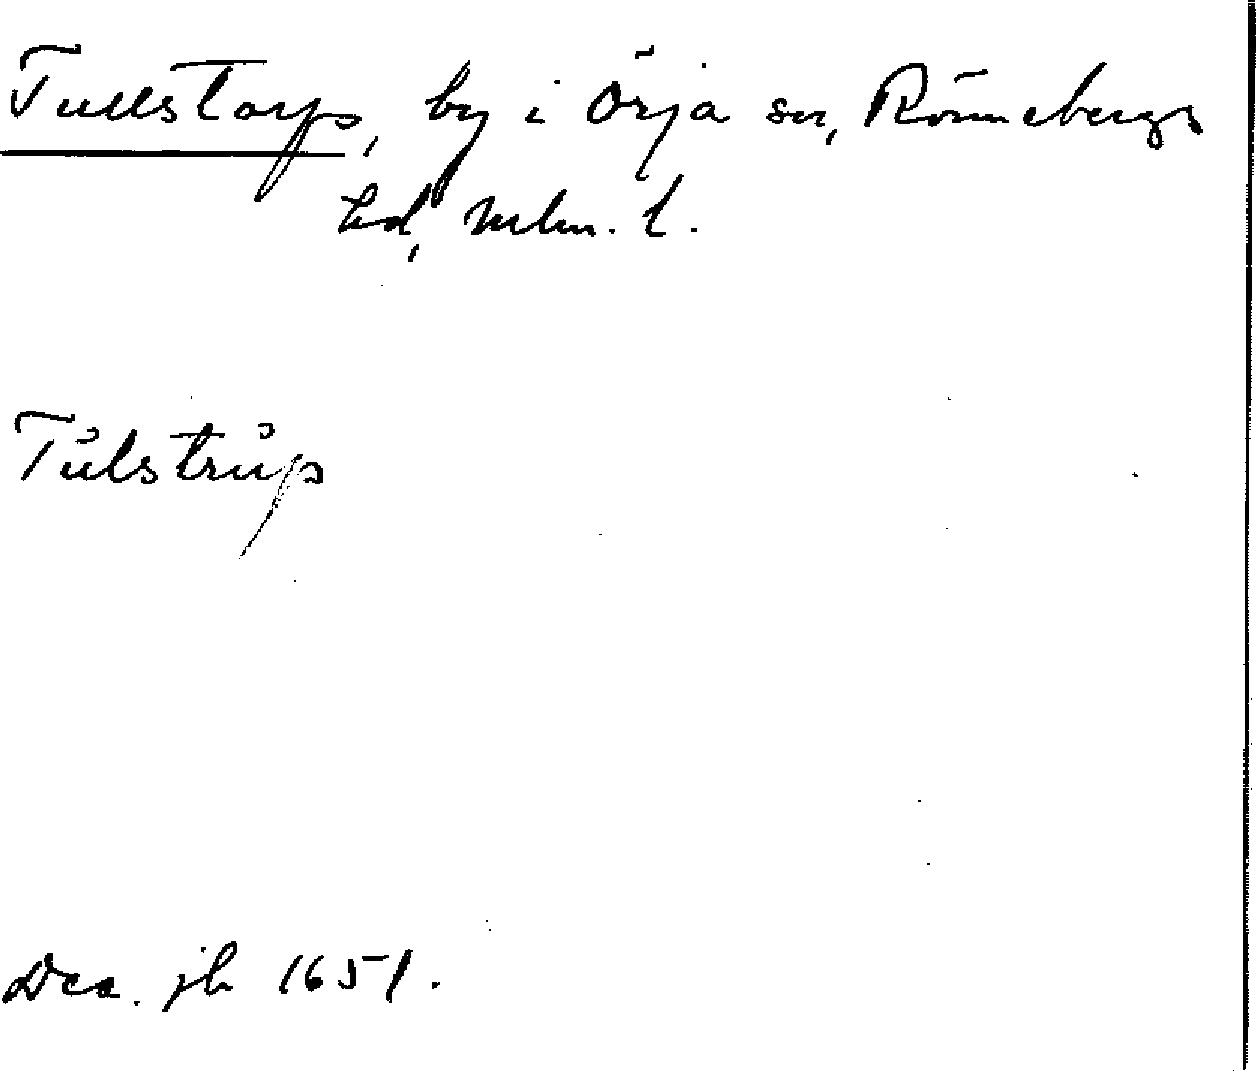 Tullstorp, by i Örja sn, Rönnebergs
hd, Mlm. l.
Tulstrup
Dca. jb 1651.